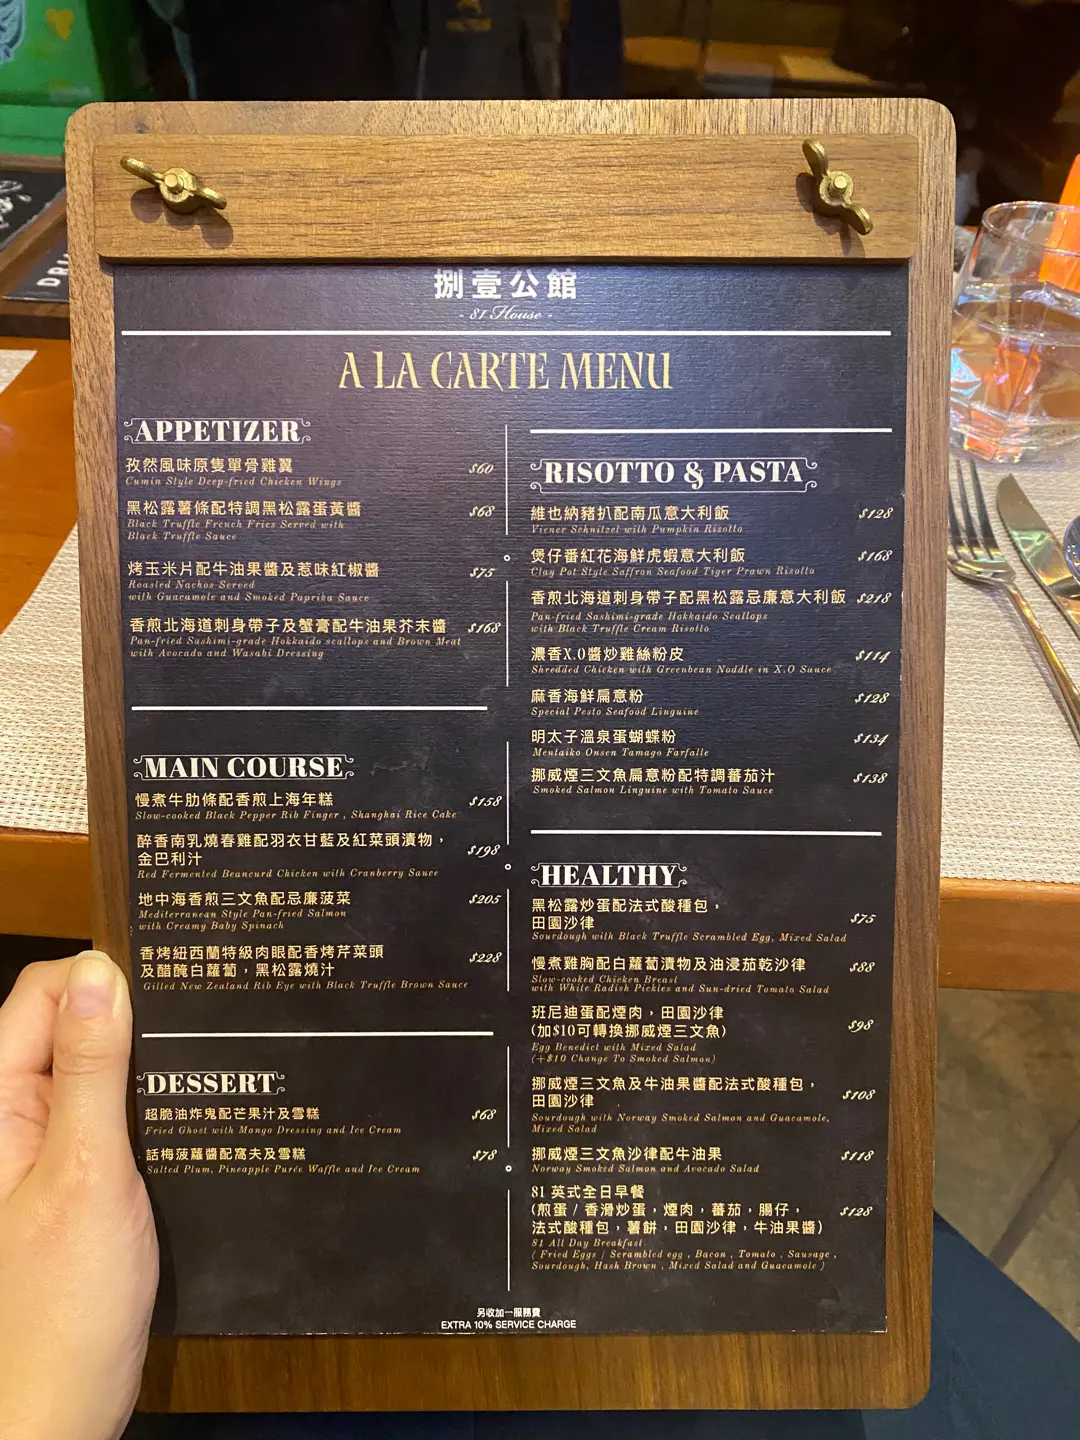 捌壹公館
- 81 House -
A LA CARTE MENU
APPETIZER
孜然風味原隻單骨雞翼 $60
Cumin Style Deep-fried Chicken Wings
黑松露薯條配特調黑松露蛋黃醬 $68
Black Truffle French Fries Served with
Black Truffle Sauce
烤玉米片配牛油果醬及惹味紅椒醬 $75
Roasted Nachos Served
with Guacamole and Smoked Paprika Sauce
香煎北海道刺身帶子及蟹膏配牛油果芥末醬 $168
Pan-fried Sashimi-grade Hokkaido scallops and Brown Meat
with Avocado and Wasabi Dressing
MAIN COURSE
慢煮牛肋條配香煎上海年糕 $158
Slow-cooked Black Pepper Rib Finger , Shanghai Rice Cake
醉香南乳燒春雞配羽衣甘藍及紅菜頭漬物，
金巴利汁 $198
Red Fermented Beancurd Chicken with Cranberry Sauce
地中海香煎三文魚配忌廉菠菜 $205
Mediterranean Style Pan-fried Salmon
with Creamy Baby Spinach
香烤紐西蘭特級肉眼配香烤芹菜頭 $228
及醋醃白蘿蔔，黑松露燒汁
Gilled New Zealand Rib Eye with Black Truffle Brown Sauce
DESSERT
超脆油炸鬼配芒果汁及雪糕 $68
Fried Ghost with Mango Dressing and Ice Cream
話梅菠蘿醬配窩夫及雪糕 $78
Salted Plum, Pineapple Purée Waffle and Ice Cream
RISOTTO & PASTA
維也納豬扒配南瓜意大利飯 $128
Viener Schnitzel with Pumpkin Risotto
煲仔番紅花海鮮虎蝦意大利飯 $168
Clay Pot Style Saffron Seafood Tiger Prawn Risotto
香煎北海道刺身帶子配黑松露忌廉意大利飯 $218
Pan-fried Sashimi-grade Hokkaido Scallops
with Black Truffle Cream Risotto
濃香X.O醬炒雞絲粉皮 $114
Shredded Chicken with Greenbean Noddle in X.O Sauce
麻香海鮮扁意粉 $128
Special Pesto Seafood Linguine
明太子溫泉蛋蝴蝶粉 $134
Mentaiko Onsen Tamago Farfalle
挪威煙三文魚扁意粉配特調蕃茄汁 $138
Smoked Salmon Linguine with Tomato Sauce
HEALTHY
黑松露炒蛋配法式酸種包，
田園沙律 $75
Sourdough with Black Truffle Scrambled Egg, Mixed Salad
慢煮雞胸配白蘿蔔漬物及油浸茄乾沙律 $88
Slow-cooked Chicken Breast
with While Radish Pickles and Sun-dried Tomato Salad
班尼迪蛋配煙肉，田園沙律
(加$10可轉換挪威煙三文魚) $98
Egg Benedict with Mixed Salad
(+$10 Change To Smoked Salmon)
挪威煙三文魚及牛油果醬配法式酸種包，
田園沙律 $108
Sourdough with Norway Smoked Salmon and Guacamole,
Mixed Salad
挪威煙三文魚沙律配牛油果 $118
Norway Smoked Salmon and Avocado Salad
81 英式全日早餐
(煎蛋 / 香滑炒蛋，煙肉，蕃茄，腸仔， $128
法式酸種包，薯餅，田園沙律，牛油果醬)
81 All Day Breakfast
( Fried Eggs / Scrambled egg , Bacon , Tomato , Sausage ,
Sourdough, Hash Brown , Mixed Salad and Guacamole )
另收加一服務費
EXTRA 10% SERVICE CHARGE